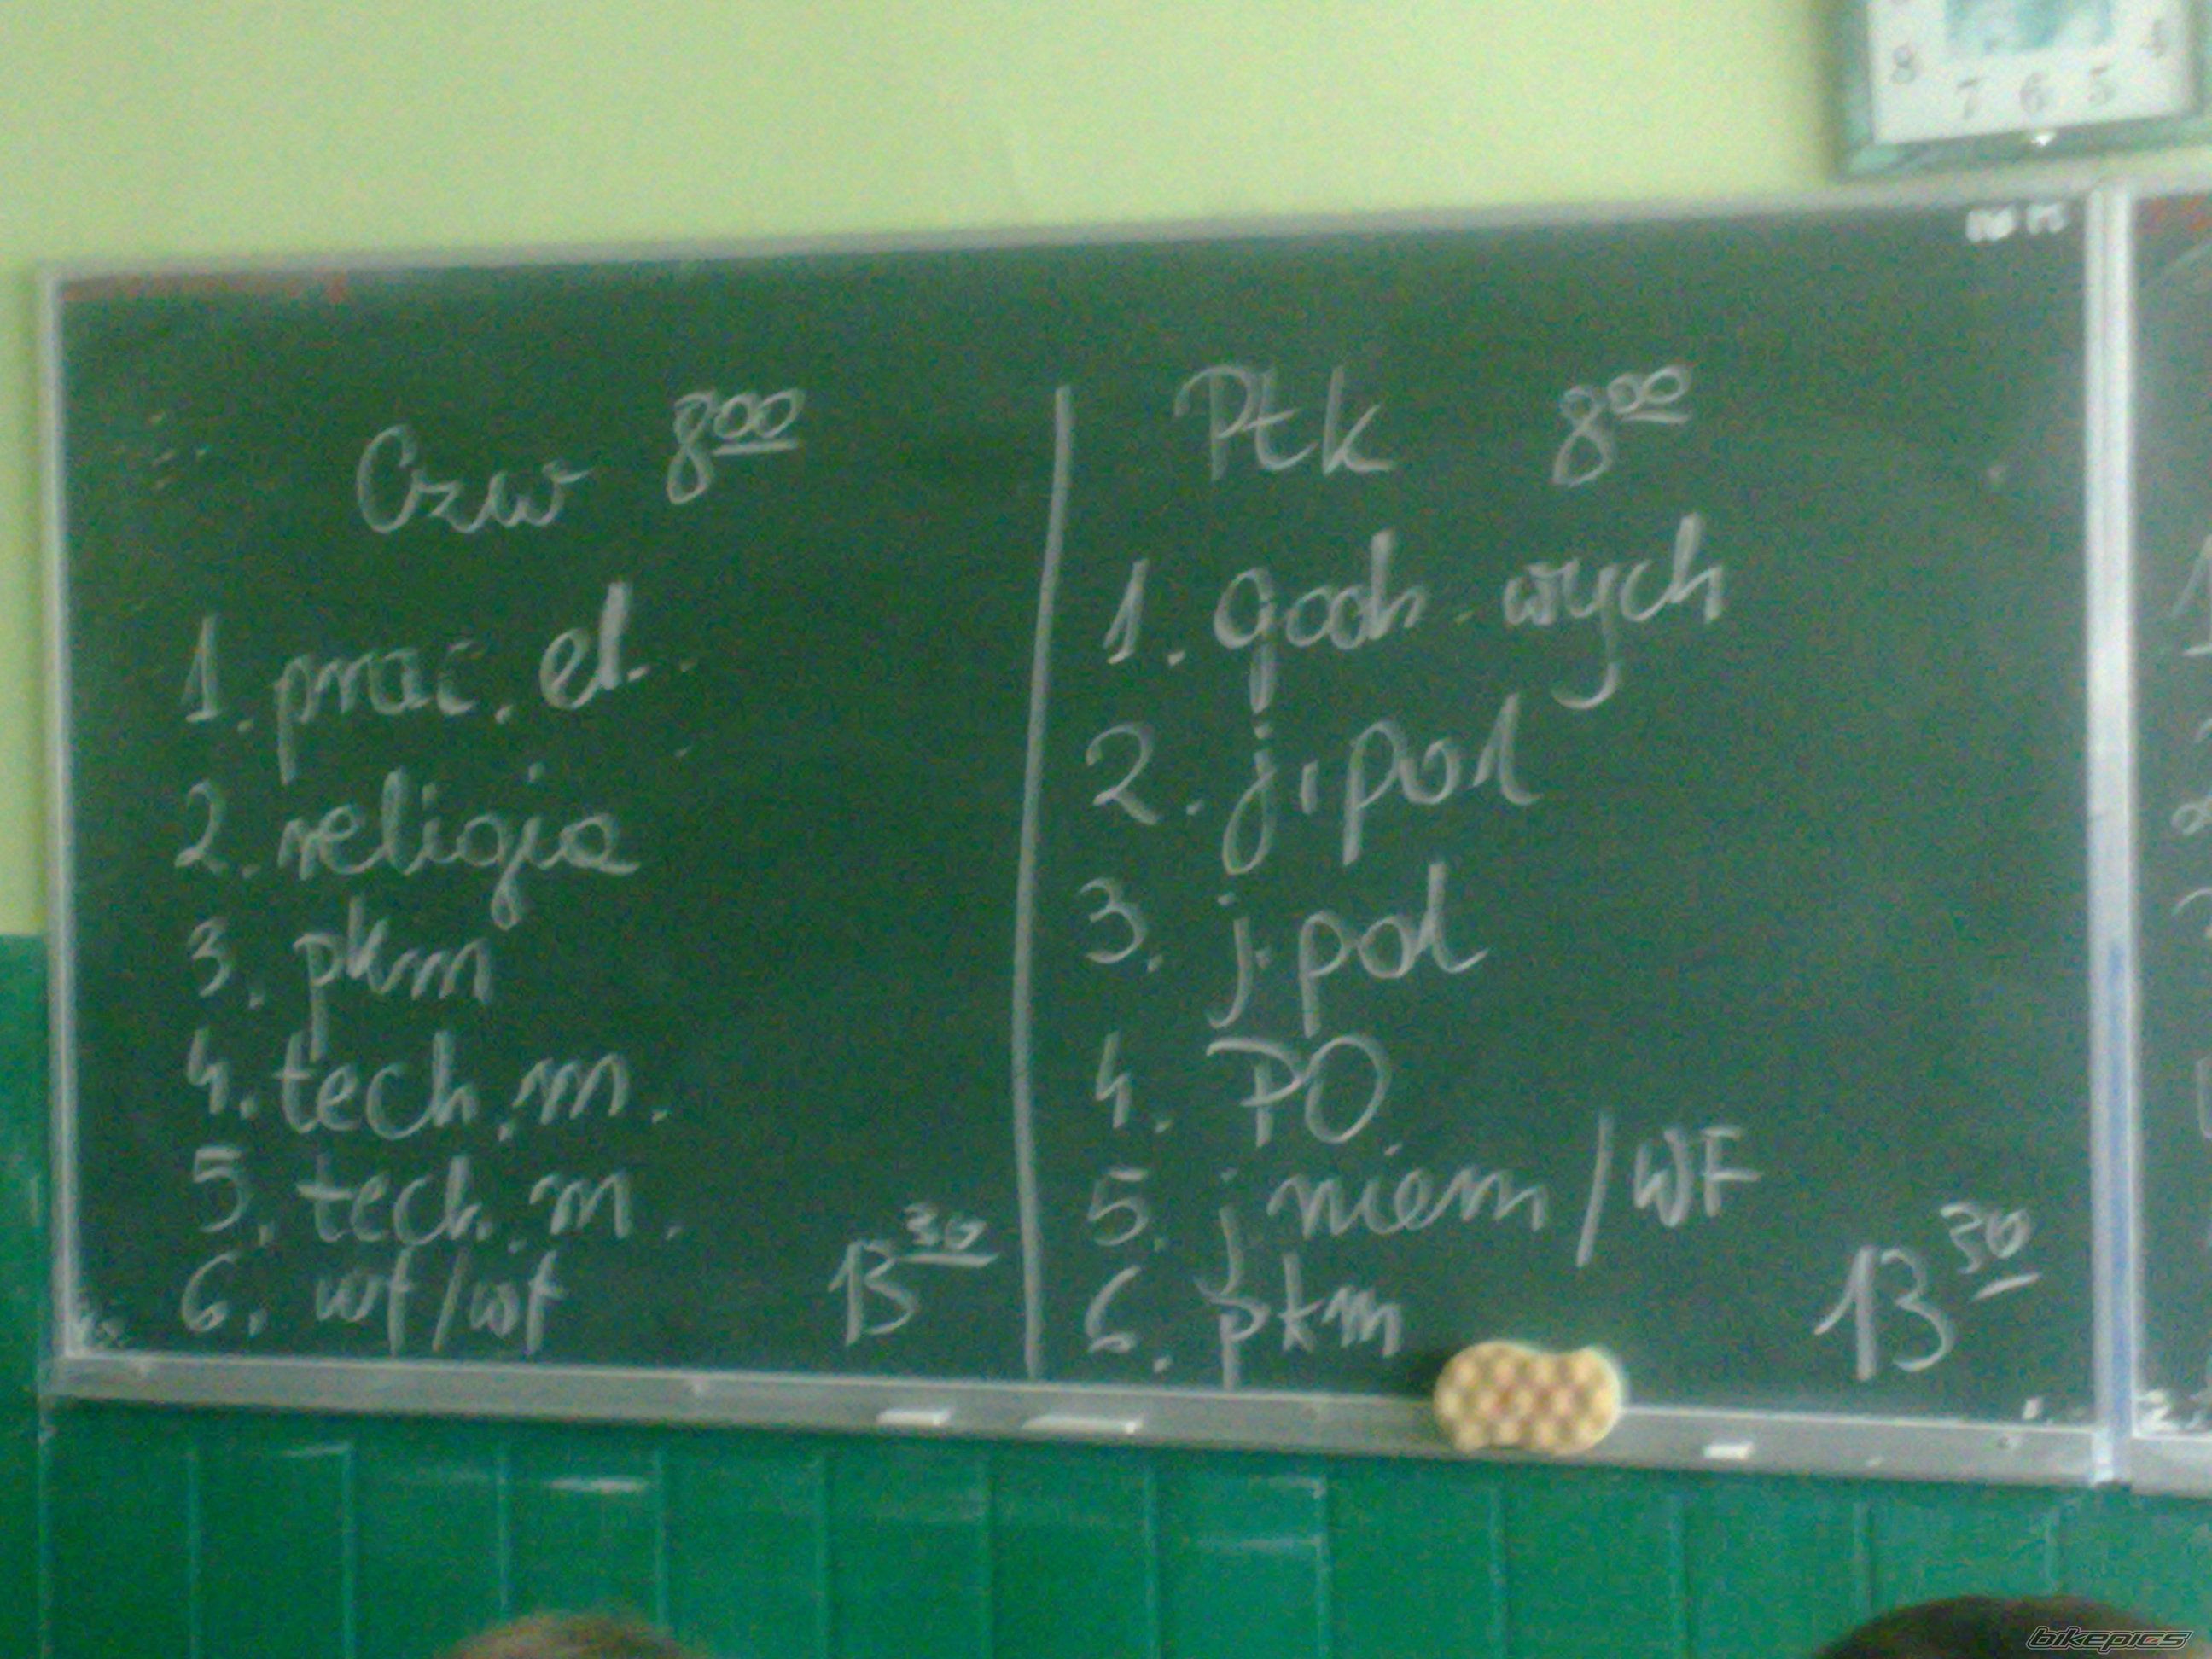 8 7 6 5 4
Czw 8⁰⁰
1. prac. el.
2. religia
3. pkm
4. tech. m.
5. tech. m.
6. wf/wf 13³⁰
Ptk 8⁰⁰
1. godz. wych
2. j. pol
3. j. pol
4. PO
5. j niem / WF
6. pkm 13³⁰
bikepics